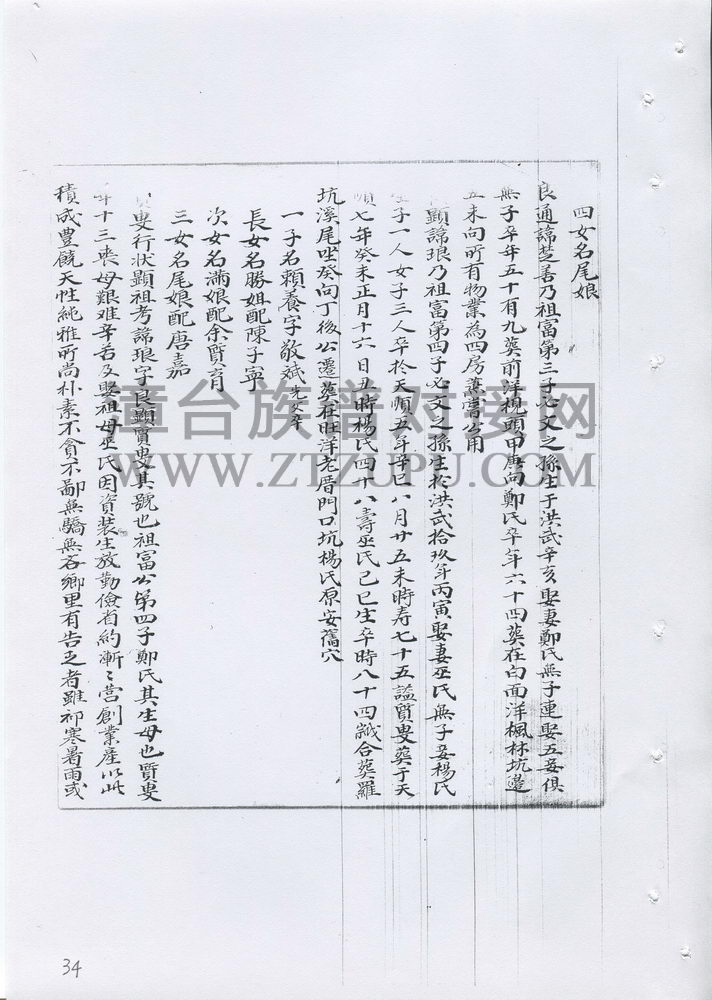 四女名尾娘
良通諱芝善乃祖富第三子必文之孫生于洪武辛亥娶妻鄭氏無子連娶五妾俱
無子卒年五十有九葬前洋梘頭甲庚向鄭氏卒年六十四葬在白面洋楓林坑邉
丑未向所有物業為四房當公用
顯諱琅乃祖富第四子必文之孫生於洪武拾玖年丙寅娶妻巫氏無子妾楊氏
生子一人女子三人卒於天順五年辛巳八月廿五未時寿七十五謚質叟葬于天
順七年癸未正月十六日丑時楊氏四十八壽巫氏己巳生卒時八十四誠合葬羅
坑溪尾坐癸向丁後公遷葬在旺洋老厝門口坑楊氏原安舊穴
一子名賴養字敬斌先父卒
長女名勝姐配陳子寧
次女名滿娘配余質育
三女名尾娘配唐嘉
質叟行状顯祖考諱琅字良顯質叟其號也祖富公第四子鄭氏其生母也質叟
年十三丧母艱难辛苦及娶祖母巫氏因資装生放勤儉省約漸〻營創業產以此
積成豊饒天性純雅所尚朴素不貪不鄙無驕無吝鄉里有告乏者雖祁寒暑雨或
章台族譜对接网
WWW.ZTZUPU.COM
34